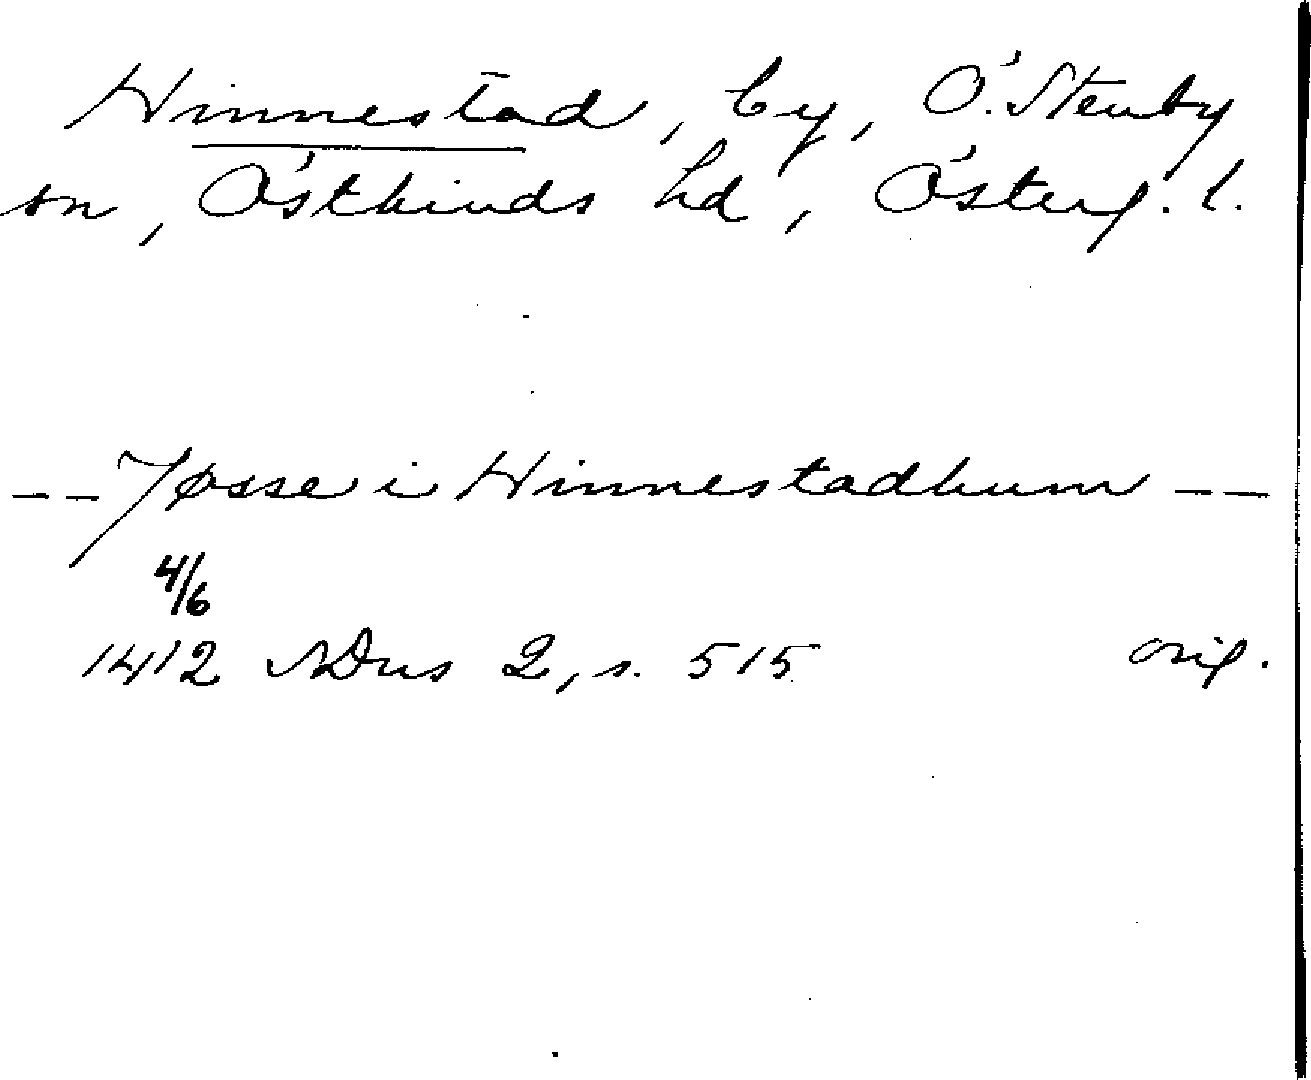 Hinnestad, by, Ö. Stenby
sn, Östkinds hd, Österg. l.
-- Jøsse i Hinnestadhum --
4/6
1412 NDns 2, s. 515 orig.